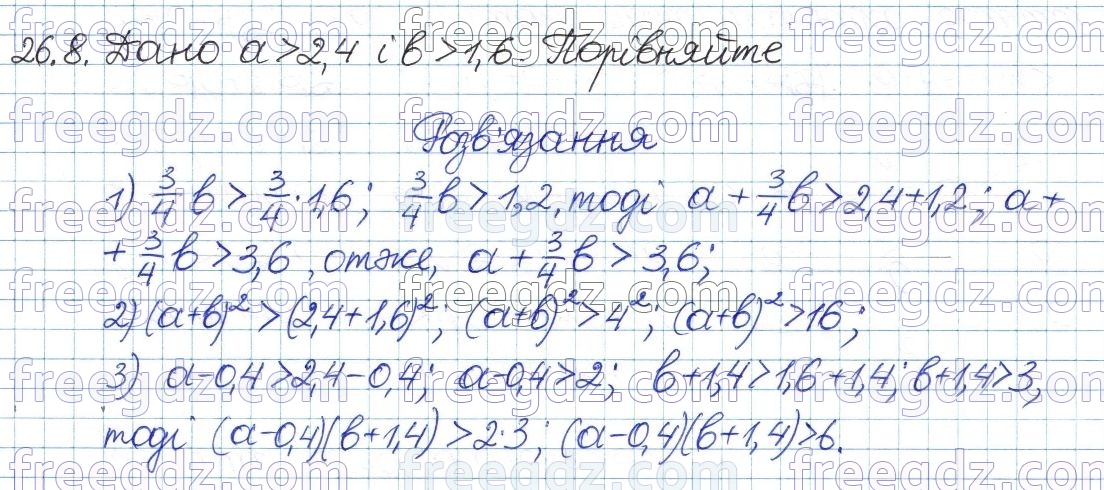 26.8. Дано a>2,4 і b>1,6. Порівняйте
Розв'язання
1) 3/4 b > 3/4 · 1,6; 3/4 b > 1,2, тоді a + 3/4 b > 2,4+1,2; a +
+ 3/4 b > 3,6, отже, a + 3/4 b > 3,6;
2) (a+b)² > (2,4+1,6)²; (a+b)² > 4²; (a+b)² > 16;
3) a-0,4 > 2,4-0,4; a-0,4 > 2; b+1,4 > 1,6+1,4; b+1,4 > 3,
тоді (a-0,4)(b+1,4) > 2·3; (a-0,4)(b+1,4) > 6.
freegdz.com